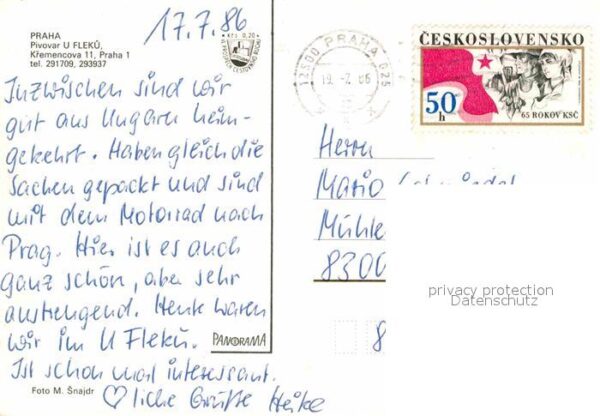 17.7.86
PRAHA
Pivovar U FLEKŮ,
Křemencova 11, Praha 1
tel. 291709, 293937
Kčs 0,20
Inzwischen sind wir
gut aus Ungarn heim-
gekehrt. Haben gleich die
Sachen gepackt und sind
mit dem Motorrad nach
Prag. Hier ist es auch
ganz schön, aber sehr
anstrengend. Heute waren
wir im U Fleků.
Ist schon mal interessant.
♡liche Grüße Heike
Foto M. Šnajdr
PANORAMA
PRAHA 025
19.-7.86
ČESKOSLOVENSKO
50 h
65 ROKOV KSČ
Herrn
Mario
Mühle
8300
8
privacy protection
Datenschutz